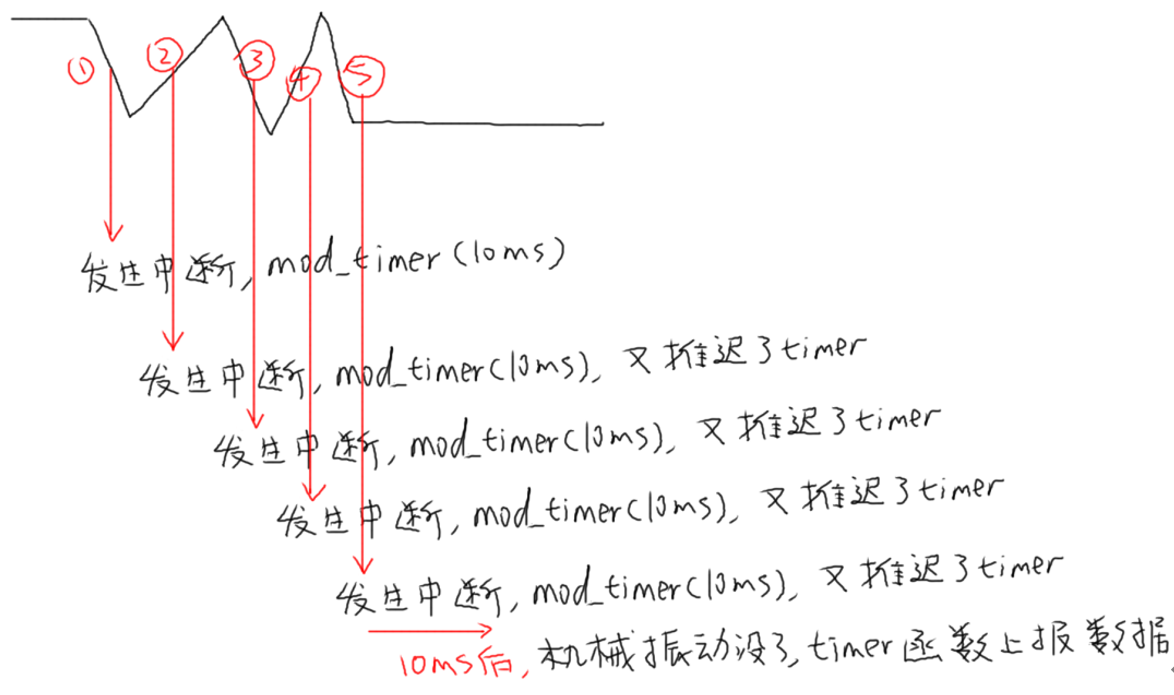 ① ② ③ ④ ⑤
发生中断, mod_timer(10ms)
发生中断, mod_timer(10ms), 又推迟了timer
发生中断, mod_timer(10ms), 又推迟了timer
发生中断, mod_timer(10ms), 又推迟了timer
发生中断, mod_timer(10ms), 又推迟了timer
10ms后, 机械振动没了, timer函数上报数据.